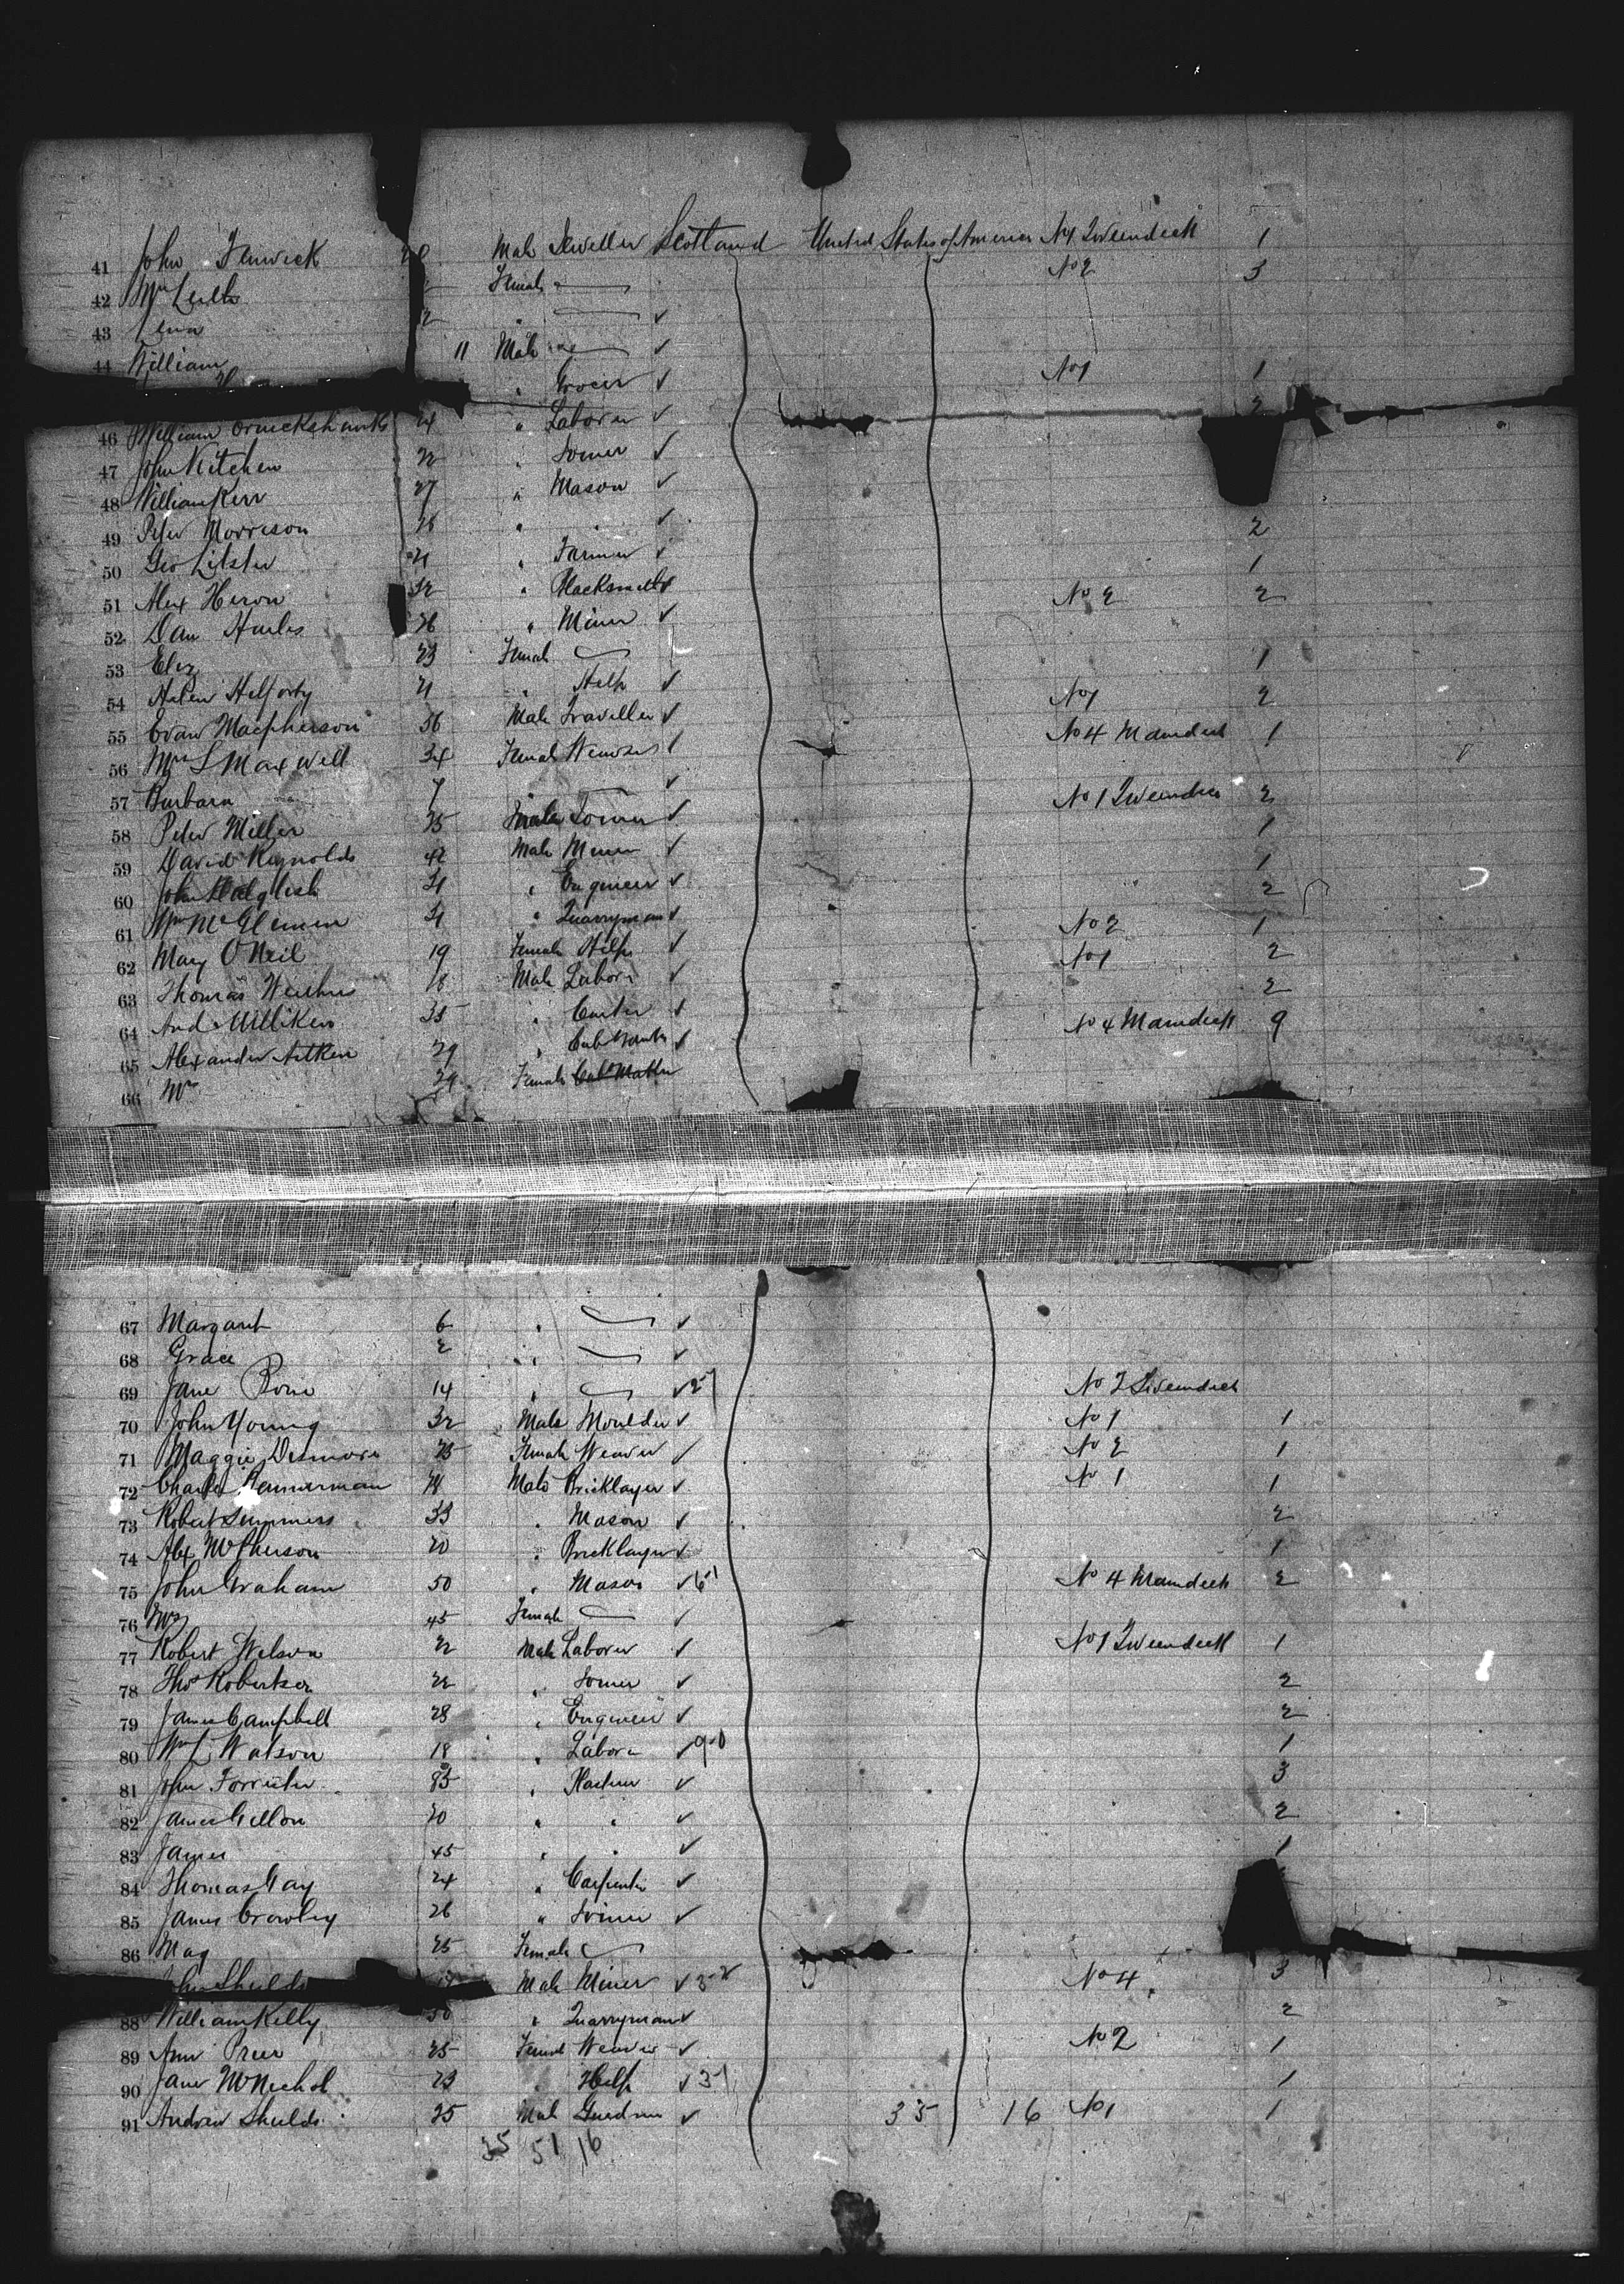 41 John Fenwick 20 Male Jeweller Scotland United States of America No 1 Tweendeck 1
42 Mrs Leith Female No 2 3
43 Lena 2 " ✓
44 William 11 Male ✓
" Grocer ✓ No 1 1
46 William Cruickshanks 24 " Laborer ✓ 2
47 John Kitchen 22 " Joiner ✓
48 William Kerr 27 " Mason ✓
49 Peter Morrison 26 " " ✓ 2
50 Geo Litster 21 " Farmer ✓ 1
51 Alex Heron 32 " Blacksmith ✓ No 2 2
52 Dan Hailes 26 " Miner ✓
53 Eliz 23 Female 1
54 Helen 21 " Help ✓ No 1 2
55 Evan Macpherson 36 Male Traveller ✓ No 4 Maindeck 1
56 Mrs L Maxwell 34 Female
57 Barbara 7 " ✓ No 1 Tweendeck 2
58 Peter Miller 25 Male Joiner ✓ 1
59 David Reynolds 42 Male Miner ✓ 1
60 John Dalglish 21 " Engineer ✓ 2
61 Wm 21 " Quarryman ✓ No 2 1
62 Mary O'Neil 19 Female Help ✓ No 1 2
63 Thomas 18 Male Laborer ✓ 2
64 And Milliken 35 " Carter ✓ No 4 Maindeck 9
65 Alexander Aitken 29 " Cab Maker ✓
66 Mrs 29 Female Cab Maker
67 Margaret 6 " ✓
68 Grace 2 " ✓
69 Jane 14 " ✓ 2-1 No 2 Tweendeck
70 John Young 32 Male Moulder ✓ No 1 1
71 Maggie 25 Female Weaver ✓ No 2 1
72 Charles Bannerman 28 Male Bricklayer ✓ No 1 1
73 Robert Simmers 33 " Mason ✓ 2
74 Alex McPherson 20 " Bricklayer ✓ 1
75 John Graham 50 " Mason ✓ 6-1 No 4 Maindeck 2
76 Mrs 45 Female ✓
77 Robert Wilson 22 Male Laborer ✓ No 1 Tweendeck 1
78 Thos Robertson 22 " Joiner ✓ 2
79 James Campbell 28 " Engineer ✓ 2
80 Wm L Watson 18 " Laborer ✓ 9-0 1
81 John Forrester 35 " ✓ 3
82 James Gellon 20 " " ✓ 2
83 James 45 " " ✓ 1
84 Thomas Gay 24 " Carpenter ✓
85 James Crowley 26 " Joiner ✓
86 Mag 25 Female
John Shields Male Miner ✓ 3-2 No 4 3
88 William Kelly 30 " Quarryman ✓ 2
89 Ann 25 Female Weaver ✓ No 2 1
90 Jane McNichol 23 " Help ✓ 3-1 1
91 Andrew Shields 25 Male ✓ 35 16 No 1 1
35 51 16